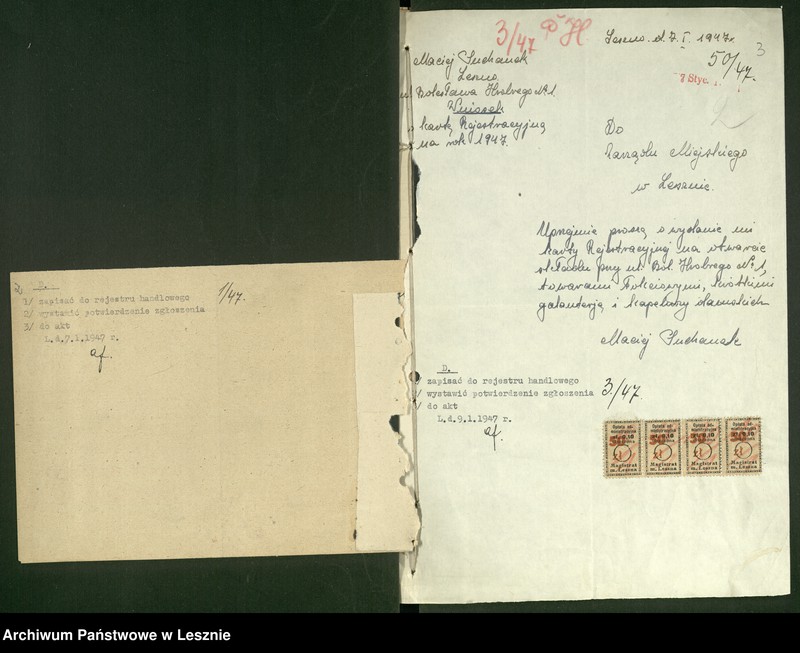 2 D.
1/ zapisać do rejestru handlowego 1/47.
2/ wystawić potwierdzenie zgłoszenia
3/ do akt
L.d.7.1.1947 r.
3/47
Leszno. d. 7. I. 1947r.
3
50/47.
7 Stycz.
2
Maciej Suchanek
Leszno.
ul Bolesława Hrobrego № 1.
Wniosek
o kartę Rejestracyjną
na rok 1947.
Do
Zarządu Miejskiego
w Lesznie.
Uprzejmie proszę o wydanie mi
karty Rejestracyjnej na otwarcie
składu przy ul. Bol. Hrobrego № 1,
towarami krótkimi
galanterją i kapeluszy damskich
Maciej Suchanek
D.
1/ zapisać do rejestru handlowego
2/ wystawić potwierdzenie zgłoszenia 3/47.
3/ do akt
L.d.9.1.1947 r.
Magistrat Magistrat Magistrat Magistrat
m. Leszna m. Leszna m. Leszna m. Leszna
Archiwum Państwowe w Lesznie